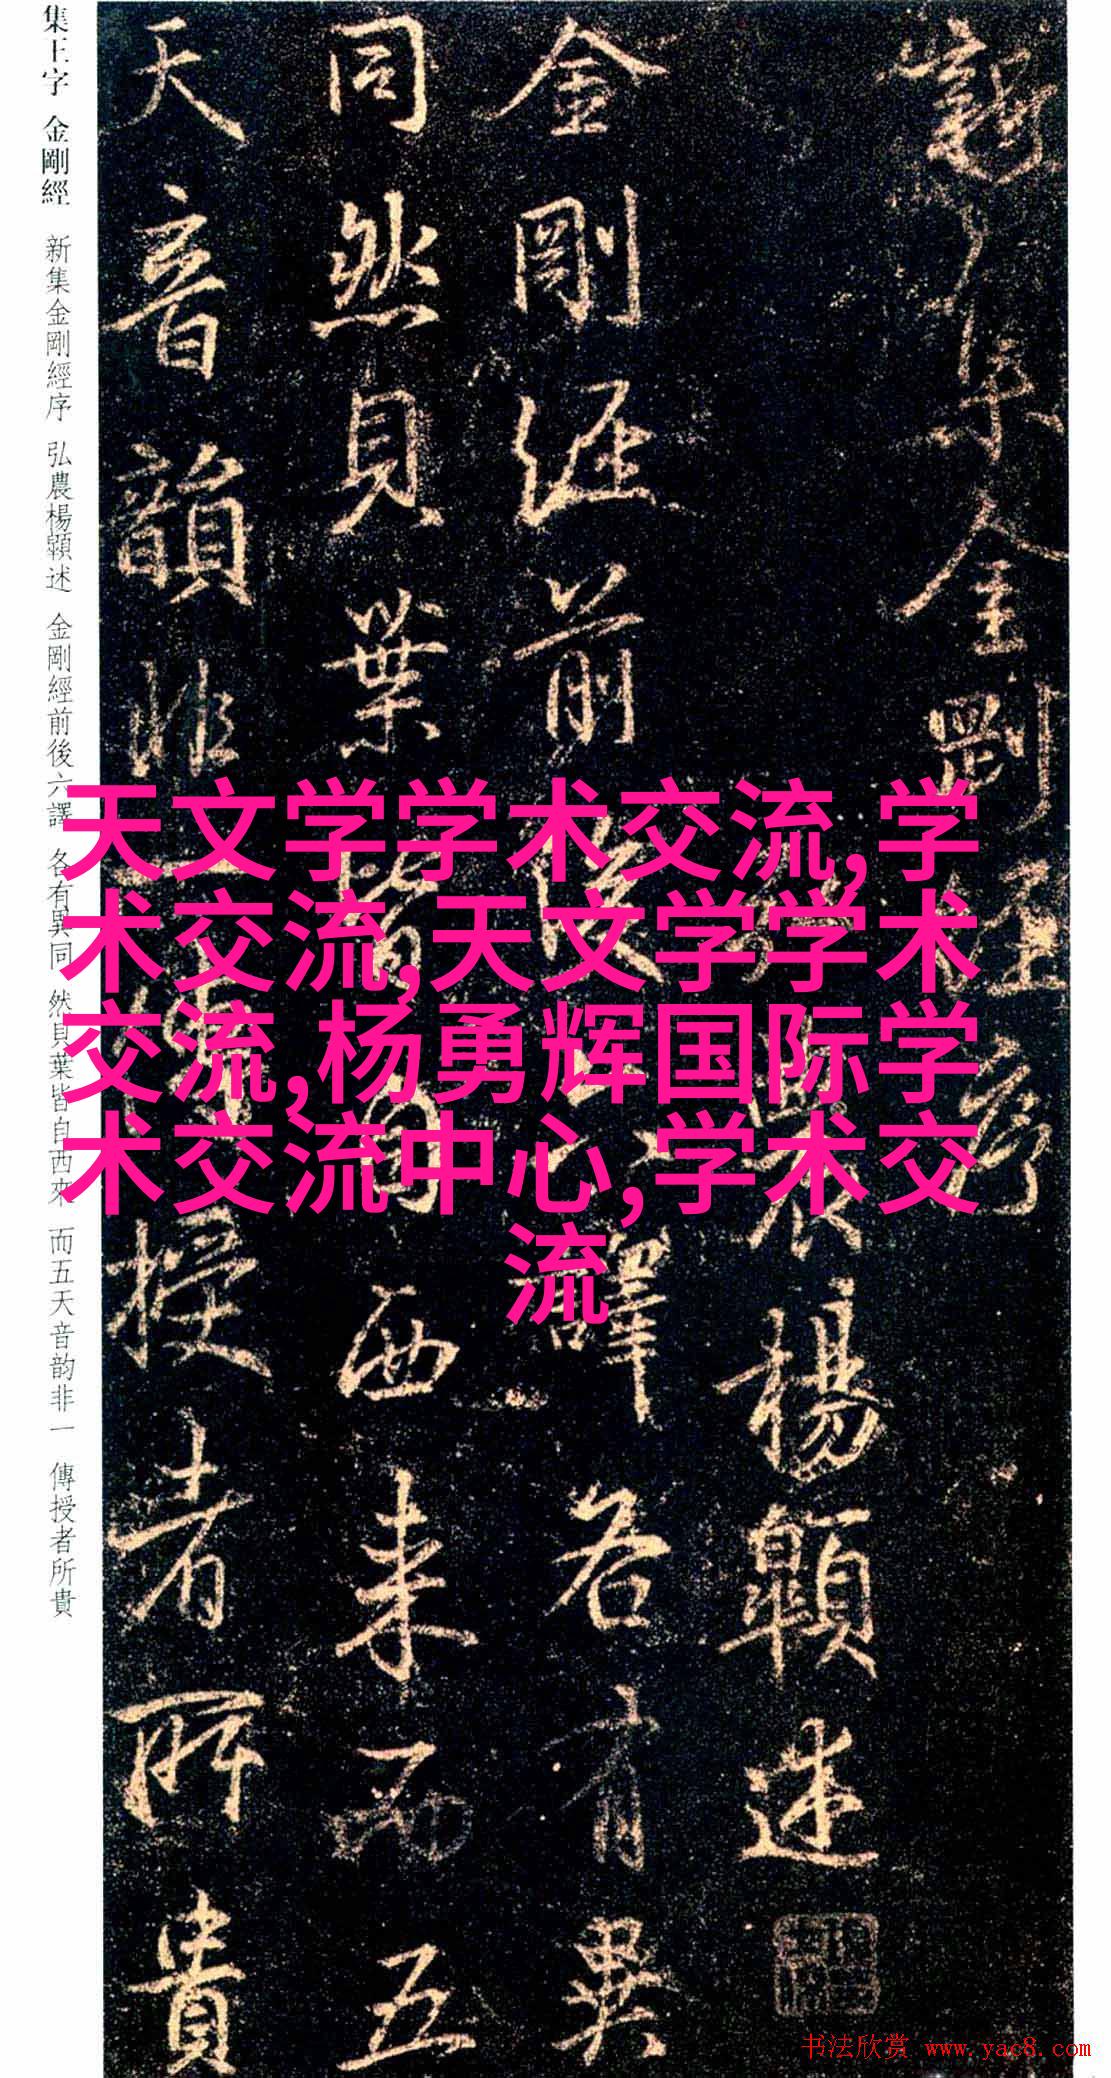 集王字 金剛經 新集金剛經序 弘農楊顗述 金剛經前後六譯 各有異同 然貝葉皆自西來 而五天音韵非一 傳授者所貴
新集金剛經序
農楊顗述
金剛經前後六譯各有異
同然貝葉皆自西来而五
天音韻非一傳授者所貴
天文学学术交流,学
术交流,天文学学术
交流,杨勇辉国际学
术交流中心,学术交
流
书法欣赏 www.yac8.com